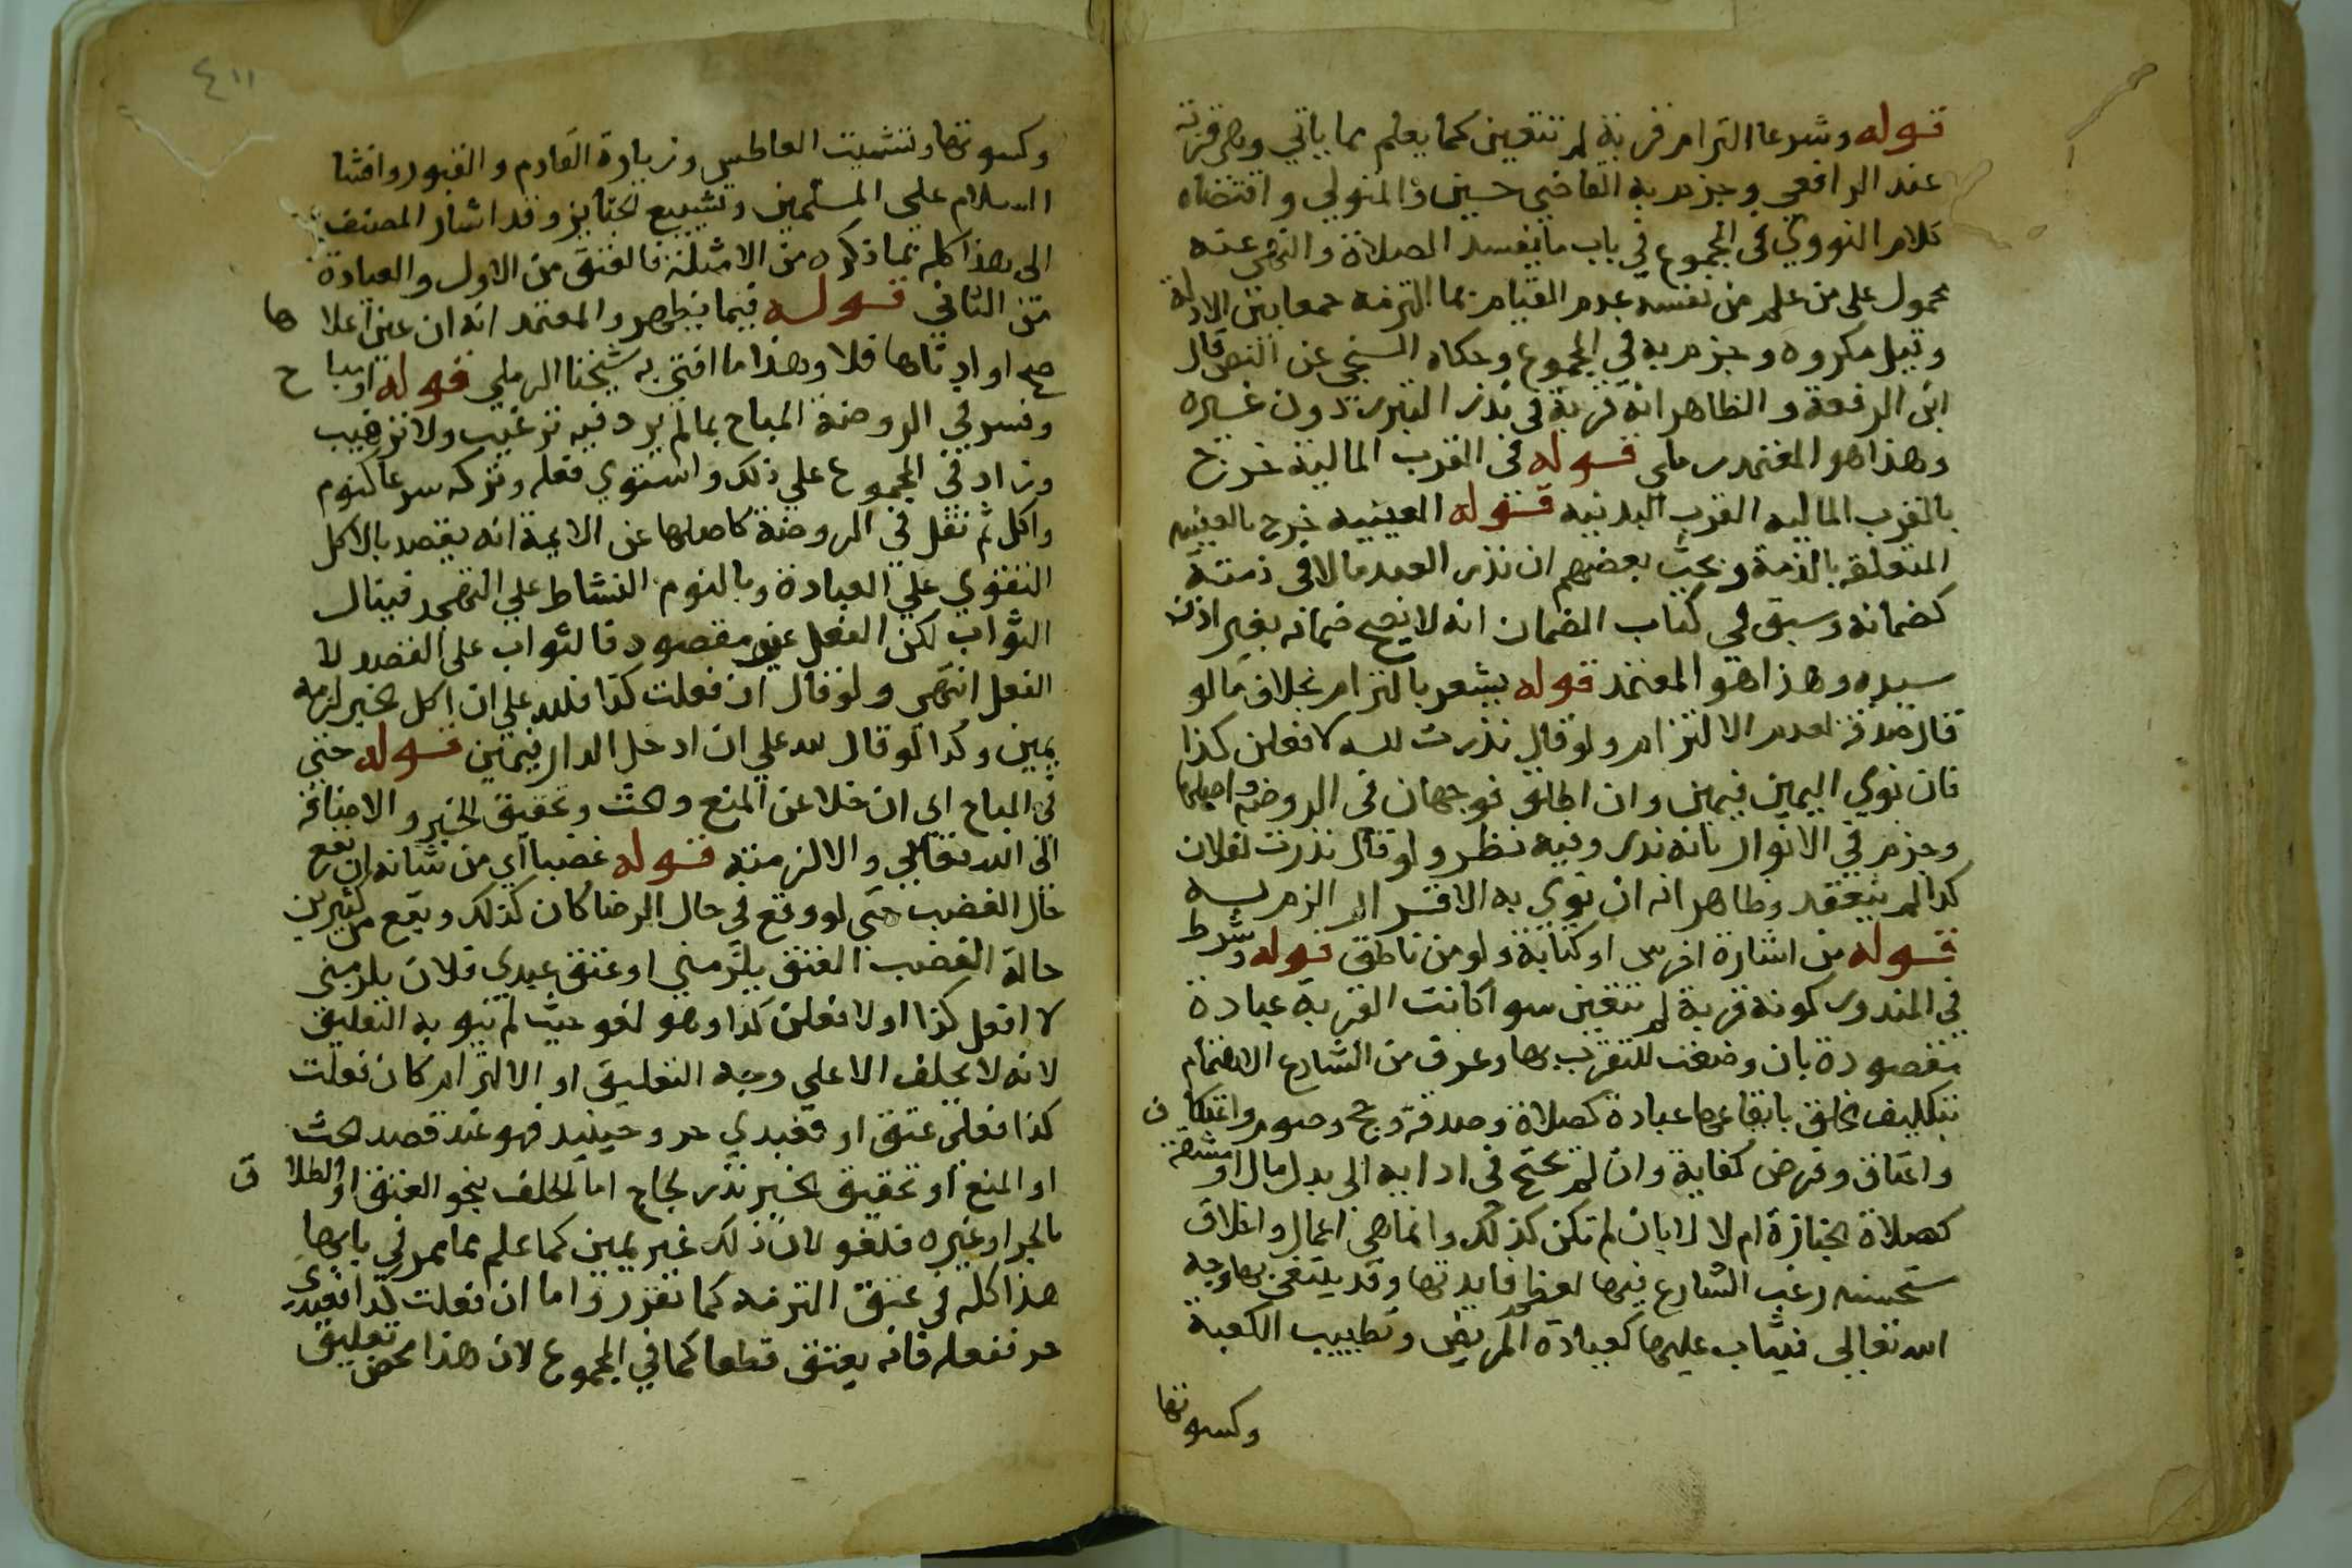 قوله وشرعا التزام قربة لم تتعين كما يعلم مما ياتي وهي قربة
عند الرافعي وجزم به القاضي حسين والمتولي واقتضاه
كلام النووي في المجموع في باب ما يفسد الصلاة والنهي عنه
محمول على من علم من نفسه عدم القيام بما التزمه جمعا بين الادلة
وقيل مكروه وجزم به في المجموع وحكاه السنجي عن النص قال
ابن الرفعة والظاهر انه قربة في نذر التبرر دون غيره
وهذا هو المعتمد رملي قوله في القرب المالية خرج
بالقرب الماليه القرب البدنيه قوله العينيه خرج بالعينيه
المتعلقه بالذمة وبحث بعضهم ان نذر العبد مالا في ذمته
كضمانه وسبق في كتاب الضمان انه لا يصح ضمانه بغير اذن
سيده وهذا هو المعتمد قوله يشعر بالتزام بخلاف ما لو
قال صدقة لعدم الالتزام ولو قال نذرت لله لافعلن كذا
فان نوي اليمين فيمين وان اطلق فوجهان في الروضة واصلها
وجزم في الانوار بانه نذر وفيه نظر ولو قال نذرت لفلان
كذا لم ينعقد وظاهر انه ان نوي به الاقرار الزم به
قوله من اشارة اخرس او كتابة ولو من ناطق قوله وشرط
في المنذور كونه قربة لم تتعين سوا كانت القربة عبادة
مقصودة بان وضعت للتقرب بها وعرف من الشارع الاهتمام
بتكليف الخلق بايقاعها عبادة كصلاة وصدقة وحج وصوم واعتكاف
واعتاق وفرض كفاية وان لم يحتج في ادايه الى بدل مال او مشقة
كصلاة الجنازة ام لا لا بان لم تكن كذلك وانما هي اعمال واخلاق
مستحسنه رغب الشارع فيها لعظم فايدتها وقد يبتغى بها وجه
الله تعالى فيثاب عليها كعيادة المريض وتطييب الكعبة
وكسوتها
٤١١
وكسوتها وتشميت العاطس وزيارة القادم والقبور وافشا
السلام علي المسلمين وتشييع الجنايز وقد اشار المصنف
الى هذا كله بما ذكره من الامثلة فالعتق من الاول والعيادة
من الثاني قوله فيما يظهر والمعتمد انه ان عين اعلاها
صح او ادناها فلا وهذا ما افتى به شيخنا الرملي قوله او مباح
وفسر في الروضة المباح بما لم يرد فيه ترغيب ولا ترهيب
وزاد في المجموع علي ذلك واستوي فعله وتركه شرعا كنوم
واكل ثم نقل في الروضة كاصلها عن الايمة انه يقصد بالاكل
التقوي علي العبادة وبالنوم النشاط علي التهجد فينال
الثواب لكن الفعل غير مقصود فالثواب على القصد لا
الفعل انتهى ولو قال ان فعلت كذا فلله علي ان اكل الخبز لزمه
يمين وكذا لو قال لله علي ان ادخل الدار فيمين قوله حتي
في المباح اي ان خلا عن المنع والحث وتحقيق الخبر والاضافة
الى الله تعالي والا لزمته قوله غضبا اي من شانه ان يقع
حال الغضب حتى لو وقع في حال الرضا كان كذلك ويقع من كثيرين
حالة الغضب العتق يلزمني او عتق عبدي فلان يلزمني
لا افعل كذا او لافعلن كذا وهو لغو حيث لم ينو به التعليق
لانه لا يحلف الا علي وجه التعليق او الالتزام كان فعلت
كذا فعلي عتق او فعبدي حر وحينيذ فهو عند قصد الحث
او المنع او تحقيق الخبر نذر لجاج اما الحلف بنحو العتق او الطلاق
بالجر او غيره فلغو لان ذلك غير يمين كما علم مما مر في بابها
هذا كله في عتق التزمه كما تقرر واما ان فعلت كذا فعبدي
حر ففعله فانه يعتق قطعا كما في المجموع لان هذا محض تعليق